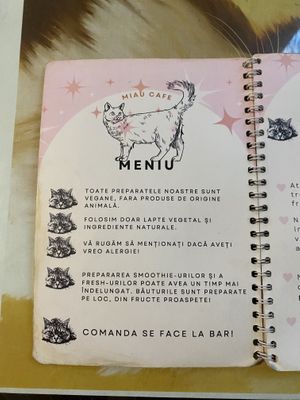 MIAU CAFE
MENIU
TOATE PREPARATELE NOASTRE SUNT
VEGANE, FARA PRODUSE DE ORIGINE
ANIMALĂ.
FOLOSIM DOAR LAPTE VEGETAL ȘI
INGREDIENTE NATURALE.
VĂ RUGĂM SĂ MENȚIONAȚI DACĂ AVEȚI
VREO ALERGIE!
PREPARAREA SMOOTHIE-URILOR ȘI A
FRESH-URILOR POATE AVEA UN TIMP MAI
ÎNDELUNGAT. BĂUTURILE SUNT PREPARATE
PE LOC, DIN FRUCTE PROASPETE!
COMANDA SE FACE LA BAR!